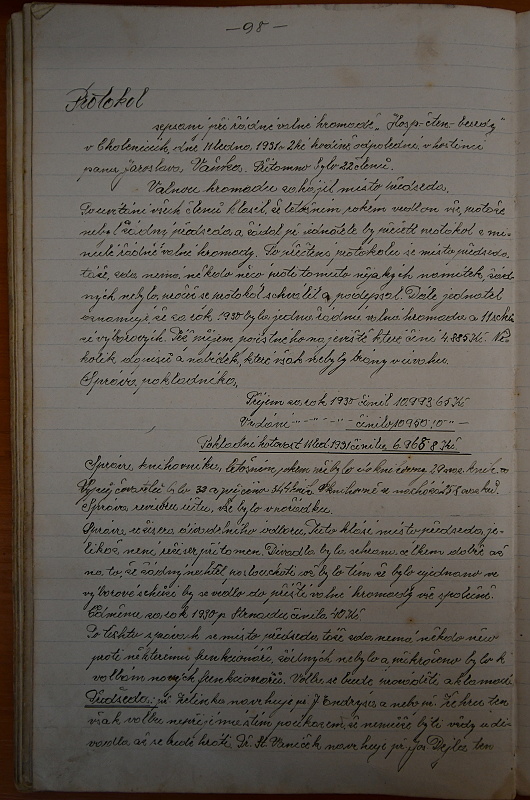 — 98 —
Protokol
sepsaný při řádné valné hromadě „Hosp.-čten.-besedy"
v Cholenicích, dne 11 ledna, 1931 v 2hé hodině odpoledne, v hostinci
pana Jaroslava Vaňka. Přítomno bylo 22 členů.
Valnou hromadu zahájil místo předseda.
Po uvítání všech členů hlásil, že letošním rokem
nebyl žádný předseda a žádal př. jednatele by přečetl protokol z mi-
nulé řádné valné hromady. Po přečtení protokolu se místo předseda
táže, zda nemá někdo něco proti tomuto nějakých námitek, žád-
ných nebylo, načež se protokol schválil a podepsal. Dále jednatel
oznamuje, že za rok 1930 byla jedna řádná valná hromada a 11 schů-
zí výborových. Též příjem pojistného na jeviště které činí 4.885 Kč. Ně-
kolik dopisů a nabídek, které však nebyly brány v úvahu.
Zpráva, pokladníka,
Příjem za rok 1930 činil 10.993,65 Kč
Vydání -"- -"- -"- činilo 10950.10 -"-
Pokladní hotovost 11 led. 1931 činila 6.968 Kč
Zpráva, knihovníka, letošním rokem
Výpůjčovatelů bylo 32 a půjčeno 344 knih.
Zpráva, revisorů účtů, vše bylo v pořádku.
Zpráva režiséra divadelního odboru, Tuto hlásí místo předseda, je-
likož není režisér přítomen. Divadla byla sehrána celkem dobře až
na to, že žádný nechtěl poslouchati což bylo tím že bylo ujednáno ve
výborové schůzi by se vedlo do příští valné hromady vše společně.
Odměna za rok 1930 p. Strnadu činila 40 Kč
Po těchto zprávách se místo předseda táže zda nemá někdo něco
proti některému funkcionáři, žádných nebylo a, přikročeno bylo k
volbám nových funkcionářů. Volba se bude prováděti aklamací
Předseda: př. Zelinka navrhuje př. J. Ondryáše a nebo př.
však volbu nepřijímá s tím poukazem, že nemůže býti vždy u di-
vadla až se bude hráti. Př. St. Vaníček navrhuje př. Jos. Dejla, ten